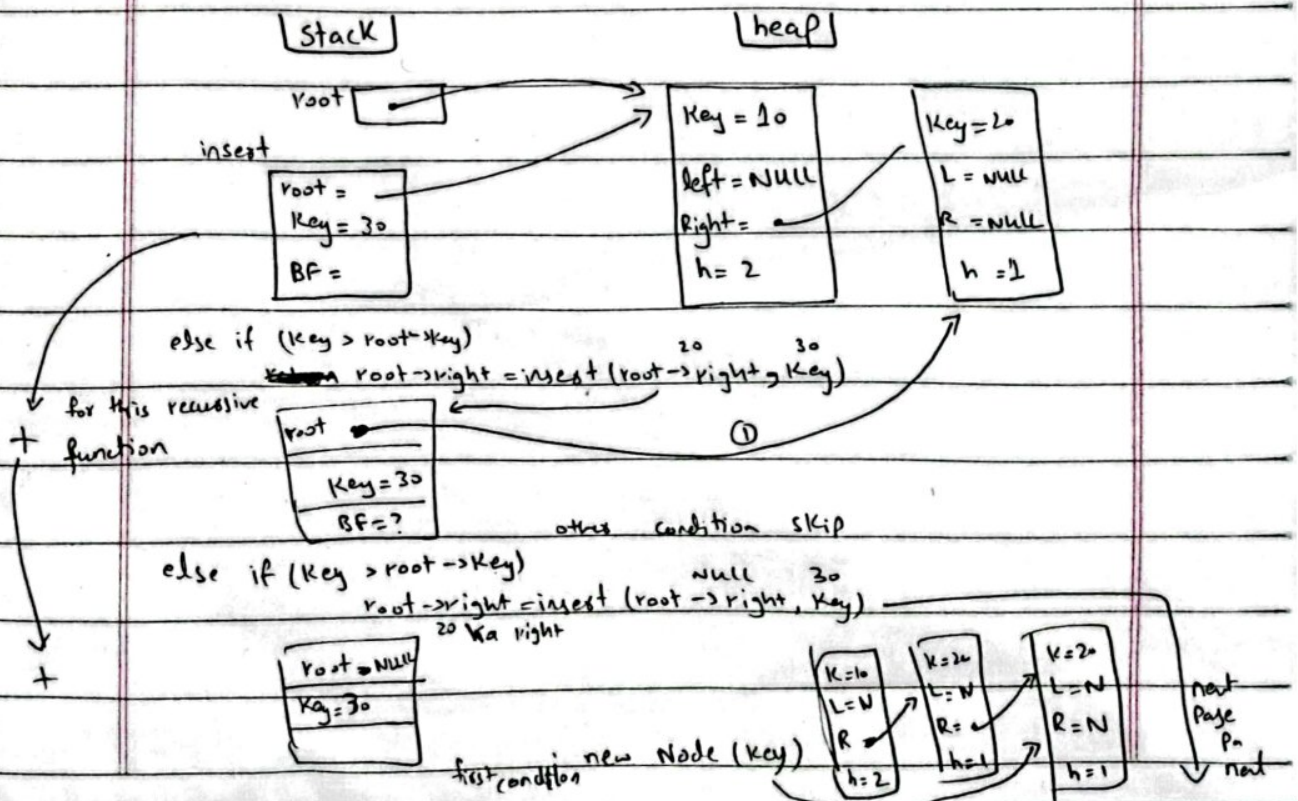 Stack
heap
root
insert
root =
Key = 30
BF =
Key = 10
left = NULL
Right =
h = 2
Key = 20
L = NULL
R = NULL
h = 1
else if (Key > root->key)
20 30
root->right = insert (root->right, Key)
for this recussive
+ function
root
Key = 30
BF = ?
①
other condition skip
else if (Key > root->Key)
NULL 30
root->right = insert (root->right, Key)
20 ka right
+
root = NULL
Key = 30
K = 10
L = N
R
h = 2
K = 20
L = N
R =
h = 1
K = 20
L = N
R = N
h = 1
next
page
pa
first condition new Node (Key)